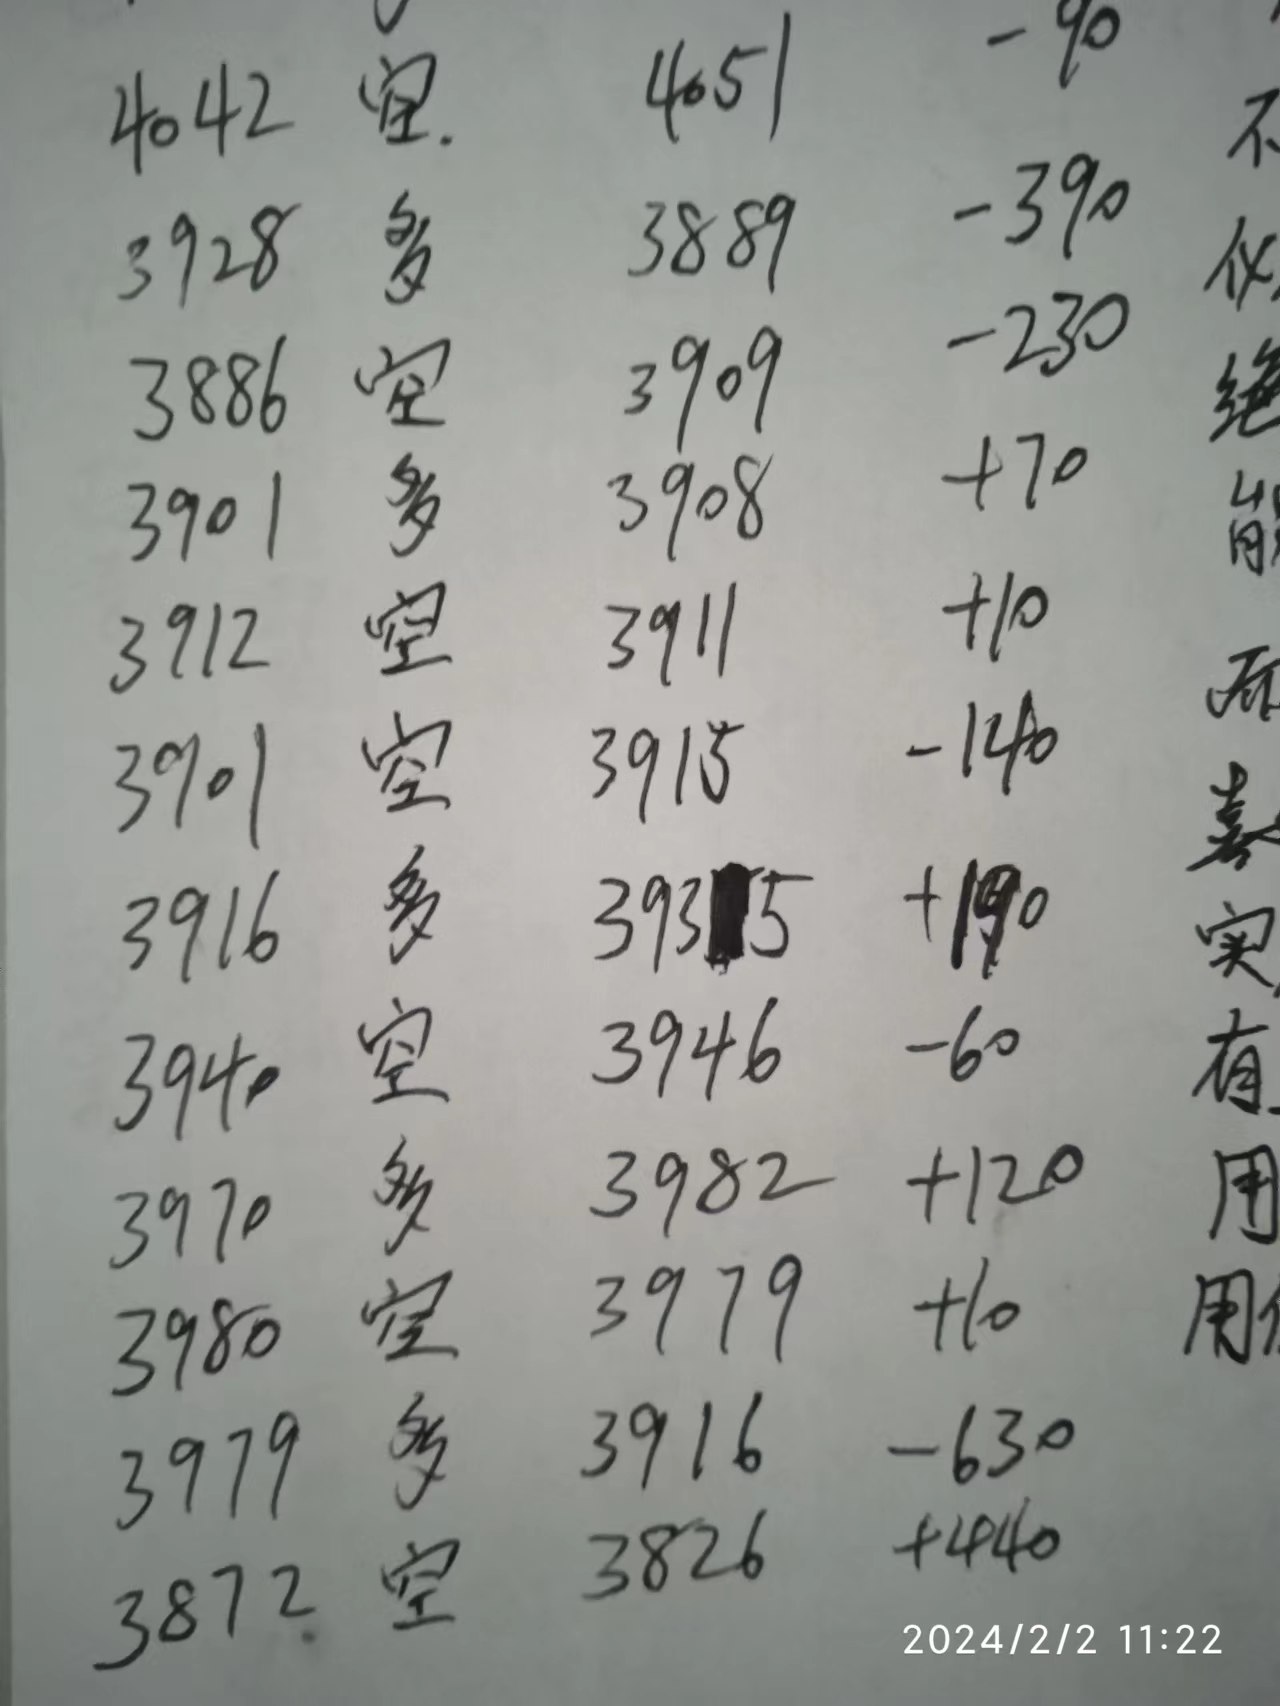 4042 空. 4051 -90
不
3928 多 3889 -390
仪
3886 空 3909 -230
绝
3901 多 3908 +70
能
3912 空 3911 +10
3901 空 3915 -140
3916 多 3935 +190
实
3940 空 3946 -60
有
3970 多 3982 +120
用
3980 空 3979 +10
用
3979 多 3916 -630
3872 空 3826 +440
2024/2/2 11:22